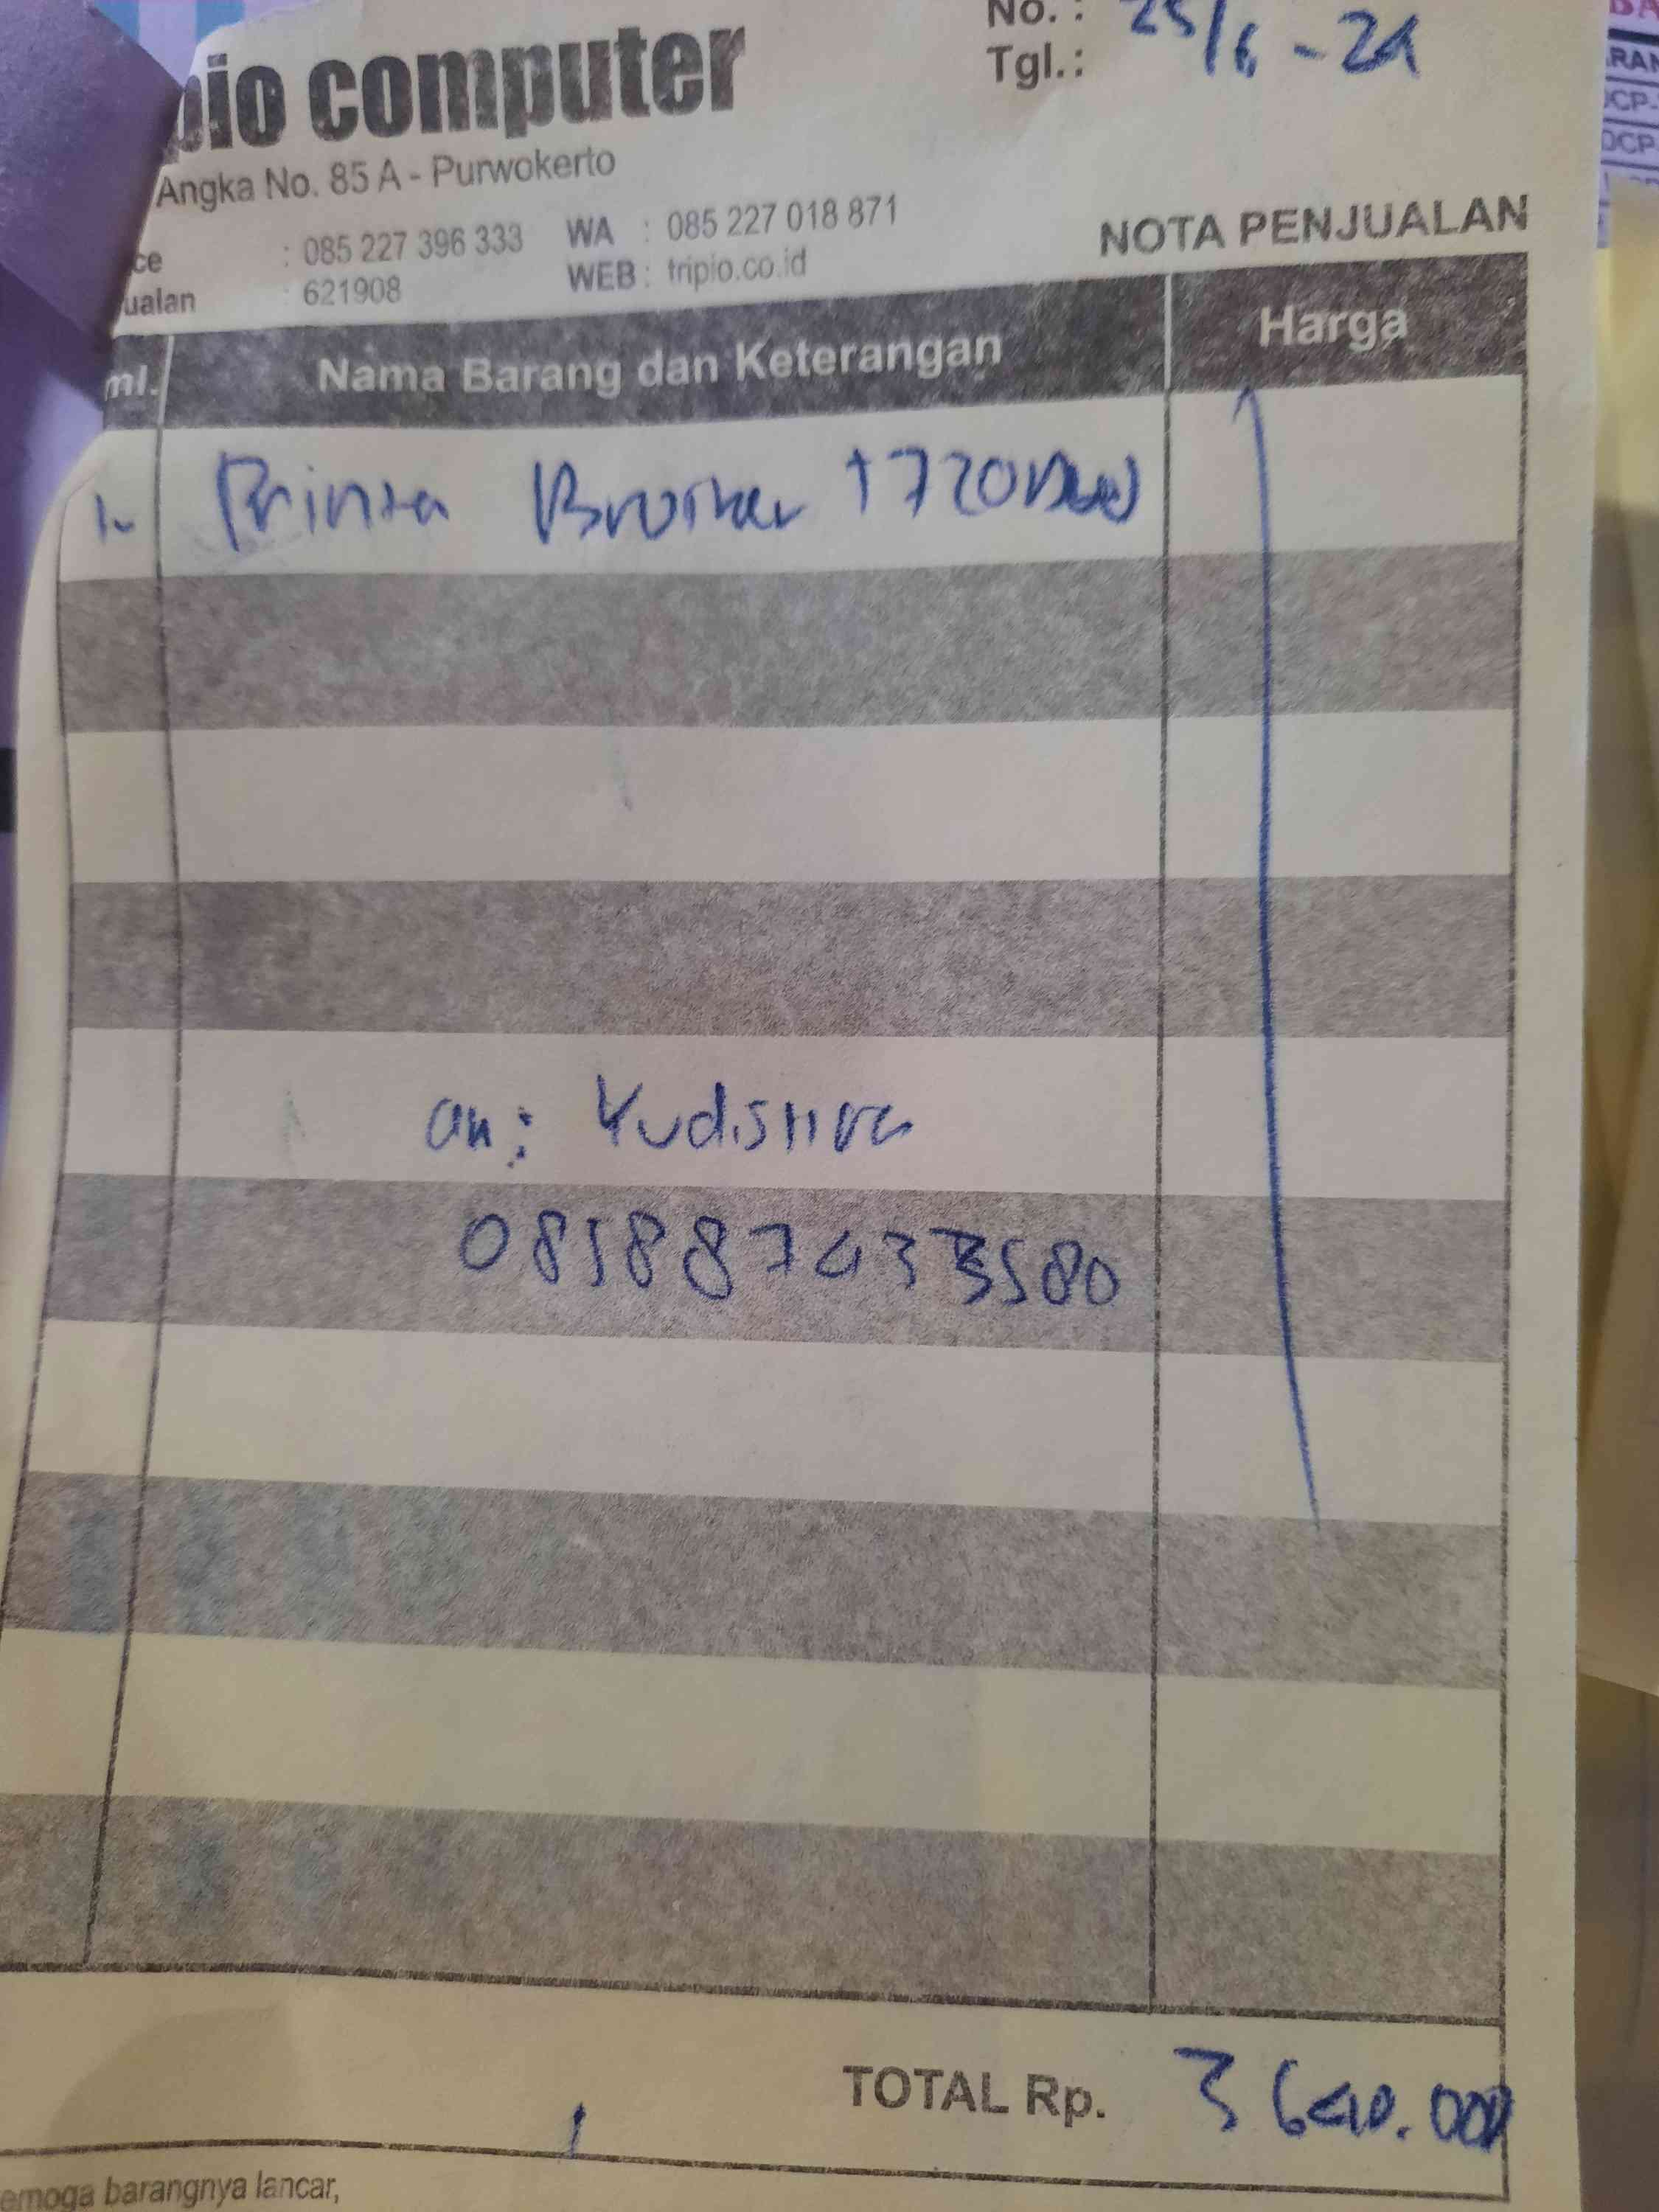 No. :
Tgl.: 25/6 - 24
pio computer
Angka No. 85 A - Purwokerto
ce : 085 227 396 333 WA : 085 227 018 871
ualan : 621908 WEB : tripio.co.id
NOTA PENJUALAN
ml. Nama Barang dan Keterangan Harga
1. Printer Brother T720DW
an: Yudistira
085887433580
TOTAL Rp. 3640.000
emoga barangnya lancar,
BA
RAN
DCP-
DCP